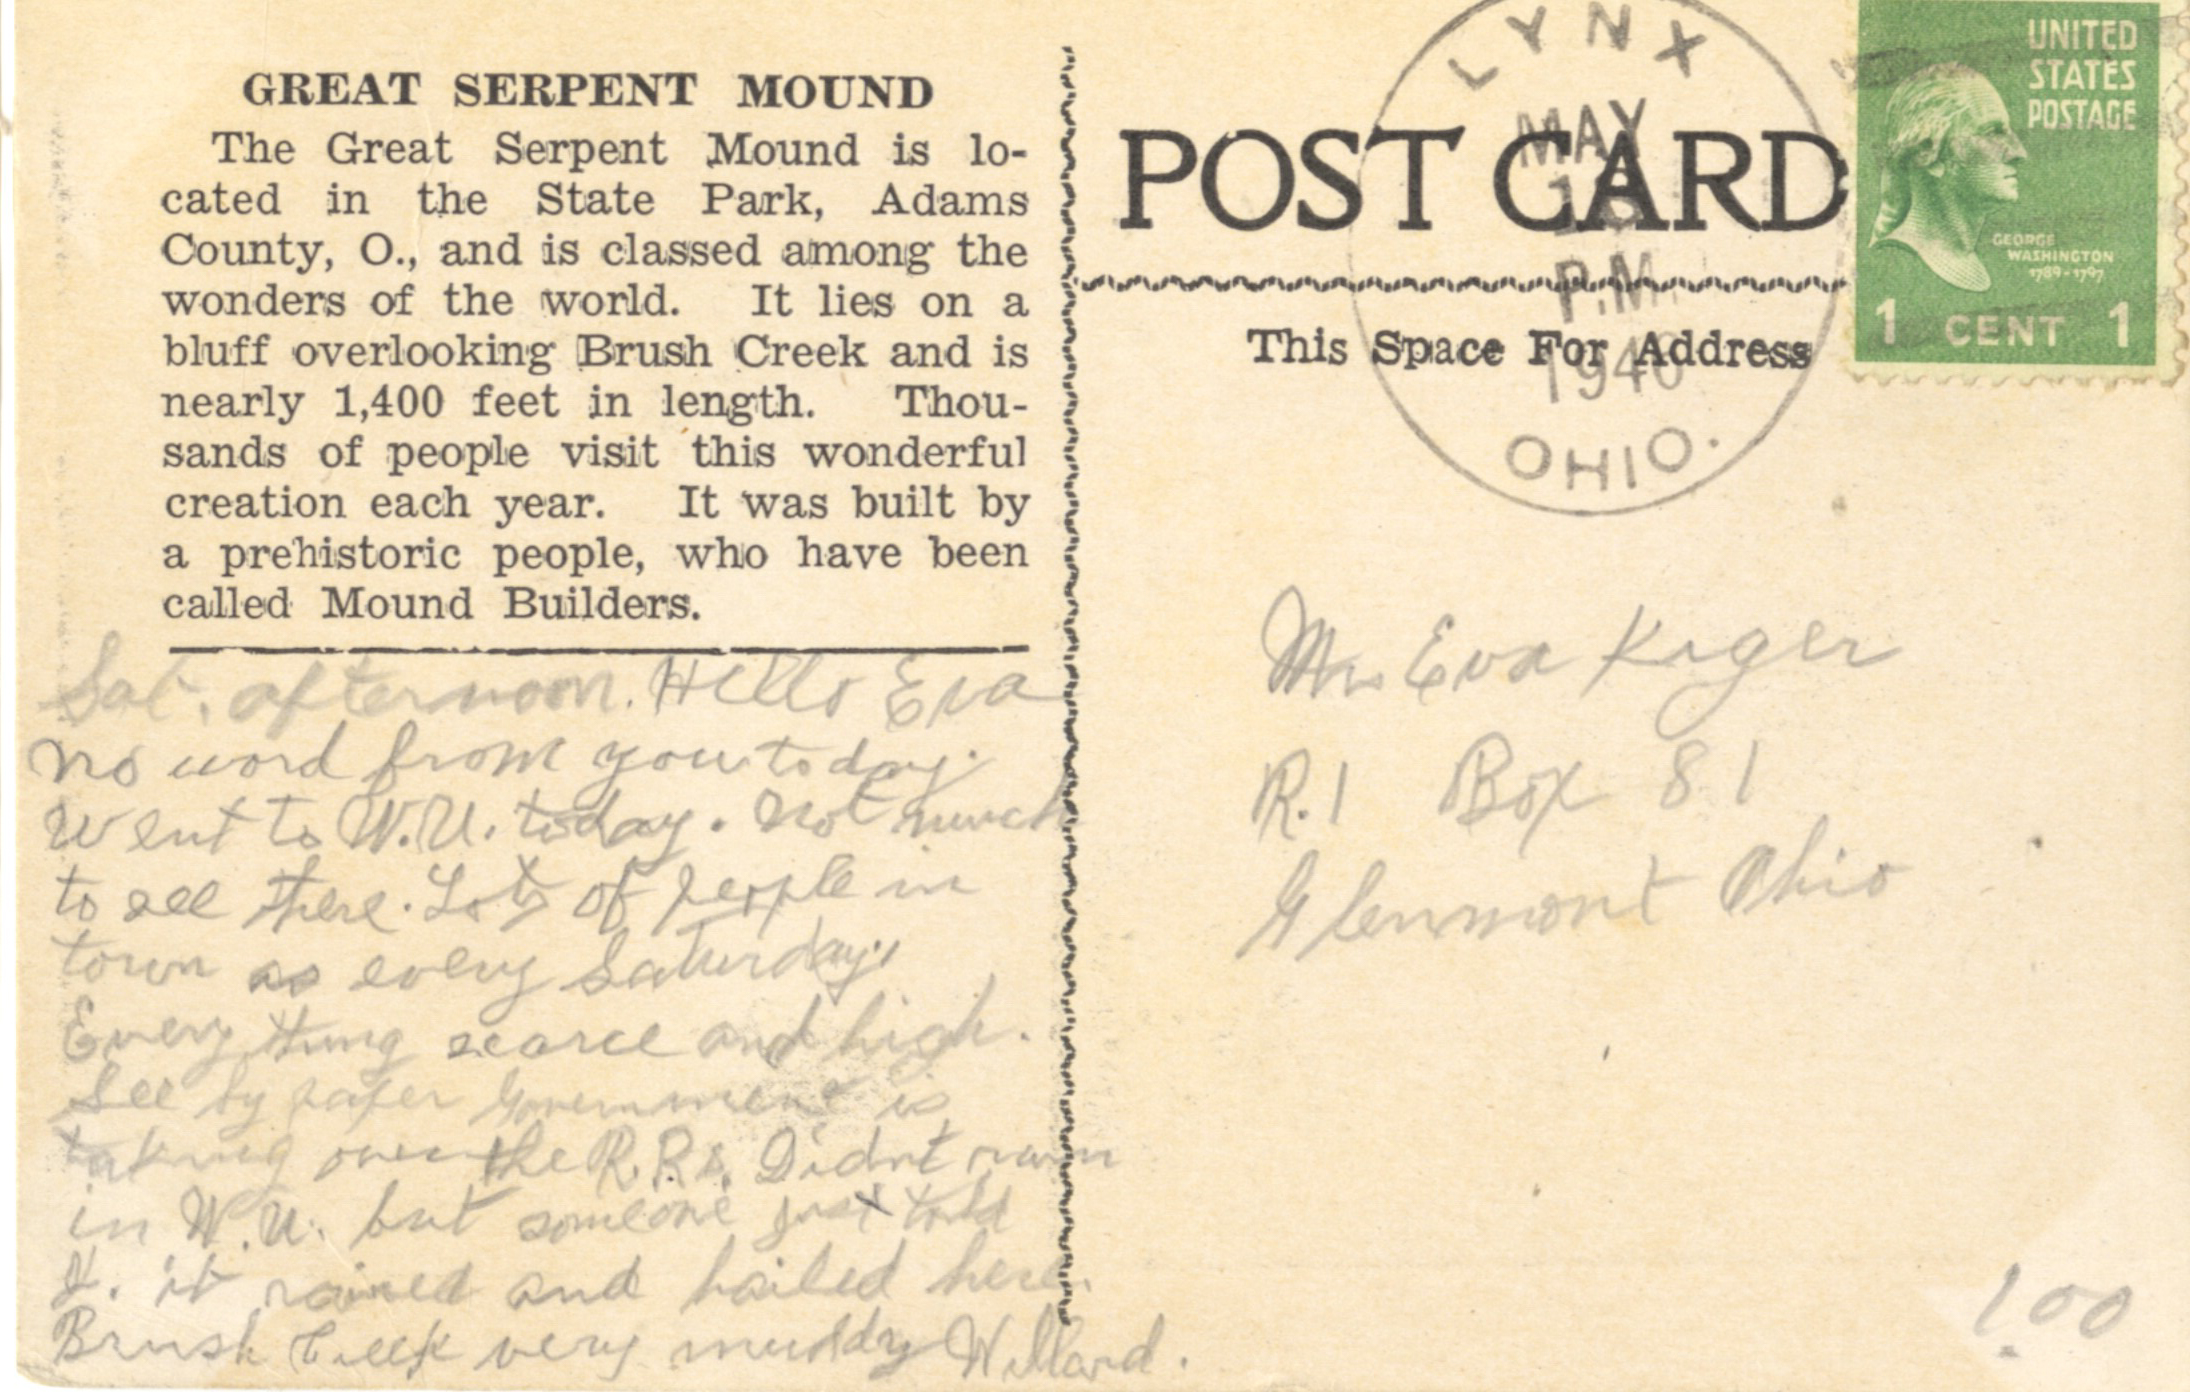 GREAT SERPENT MOUND
The Great Serpent Mound is lo-
cated in the State Park, Adams
County, O., and is classed among the
wonders of the world. It lies on a
bluff overlooking Brush Creek and is
nearly 1,400 feet in length. Thou-
sands of people visit this wonderful
creation each year. It was built by
a prehistoric people, who have been
called Mound Builders.
Sat. afternoon. Hello Eva
No word from you today.
Went to W.U. today. Not much
to see there. Lots of people in
town as every Saturday.
Every thing scarce and high.
See by paper Government is
taking over the R.Rs. Didnt rain
in W.U. but someone just told
it rained and hailed here.
Brush Creek very muddy Willard.
LYNX
MAY
18
P.M.
1946
OHIO.
POST CARD
This Space For Address
UNITED
STATES
POSTAGE
GEORGE
WASHINGTON
1789-1797
1 CENT 1
Eva Kiger
R.1 Box 81
Glenmont Ohio
1.00